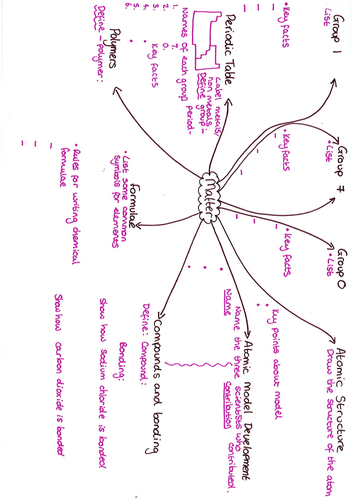 Group 1
• List
• Key facts
Group 7
• List
• Key facts
Group 0
• List
• Key facts
Atomic Structure
Draw the structure of the atom
Periodic Table
Label metals/
non metals
Define group -
period -
Names of each group
1.
2.
3.
4.
5.
6.
7.
0.
Key facts
Matter
• Key points about model
Atomic model Development
Name the three scientists who
contributed.
Name
Contribution
Polymers
Define - polymer:
Formulae
• List some common
symbols for elements
• Rules for writing chemical
formulae
Compounds and bonding
Define: Compound:
Bonding:
Show how sodium chloride is bonded
Show how carbon dioxide is bonded